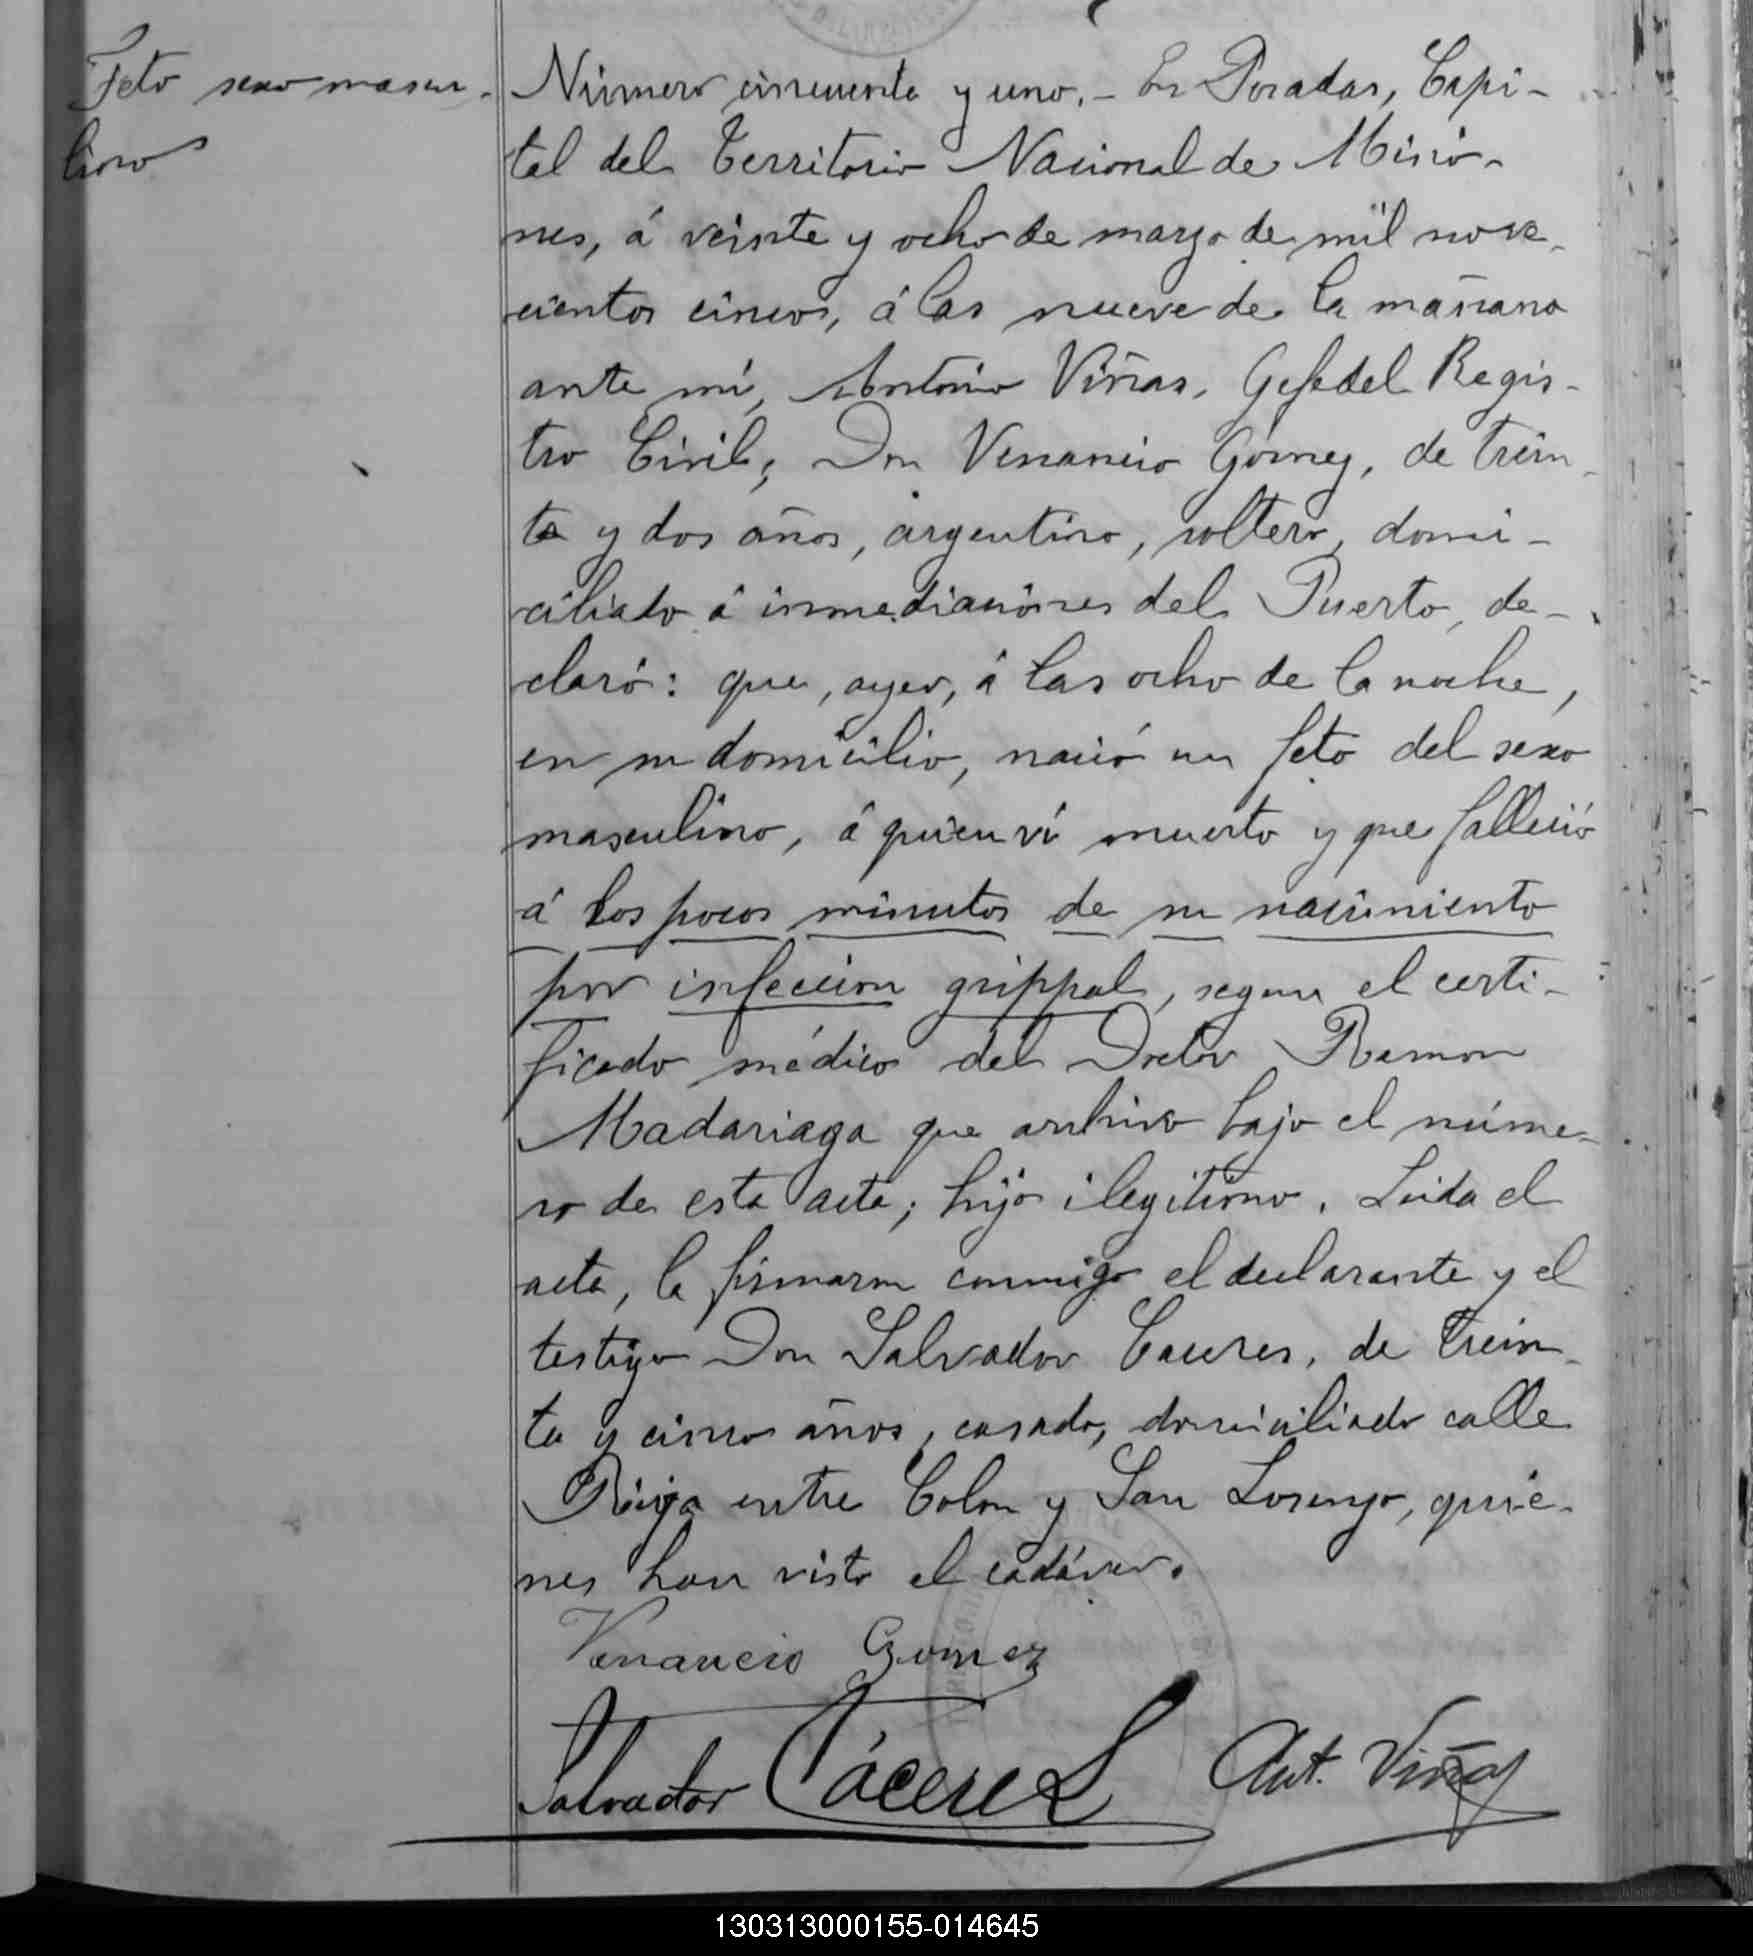 Feto sexo mascu-
lino
Número cincuenta y uno.- En Posadas, Capi-
tal del Territorio Nacional de Misio-
nes, á veinte y ocho de marzo de mil nove-
cientos cinco, á las nueve de la mañana
ante mí, Antonio Viñas, Gefe del Regis-
tro Civil; Don Venancio Gómez, de trein-
ta y dos años, argentino, soltero, domi-
ciliado á inmediaciónes del Puerto, de-
claró: que, ayer, á las ocho de la noche,
en su domicilio, nació un feto del sexo
masculino, á quien ví muerto y que falleció
á los pocos minutos de su nacimiento
por infeccion grippal, segun el certi-
ficado médico del Doctor Ramon
Madariaga que archivo bajo el núme-
ro de esta acta; hijo ilegitimo. Leida el
acta, la firmaron conmigo el declarante y el
testigo Don Salvador Caceres, de trein-
ta y cinco años, casado, domiciliado calle
Rioja entre Colon y San Lorenzo, quie-
nes han visto el cadáver.
Venancio Gomez
Salvador Cáceres Ant. Viñas
130313000155-014645